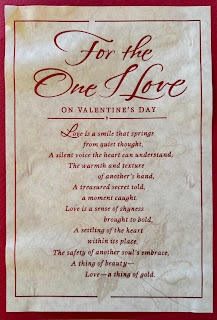 For the
One I Love
ON VALENTINE'S DAY
Love is a smile that springs
from quiet thought,
A silent voice the heart can understand,
The warmth and texture
of another's hand,
A treasured secret told,
a moment caught.
Love is a sense of shyness
brought to bold,
A settling of the heart
within its place,
The safety of another soul's embrace,
A thing of beauty—
Love—a thing of gold.